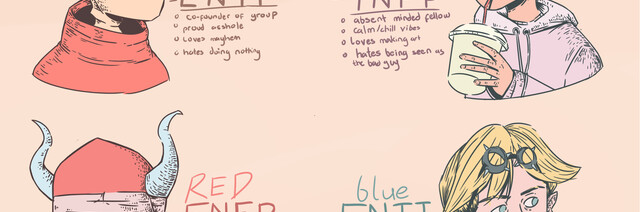 • co-founder of group
• proud asshole
• Loves mayhem
• hates doing nothing
INFP
• absent minded fellow
• calm/chill vibes
• loves making art
• hates being seen as
the bad guy
RED
blue